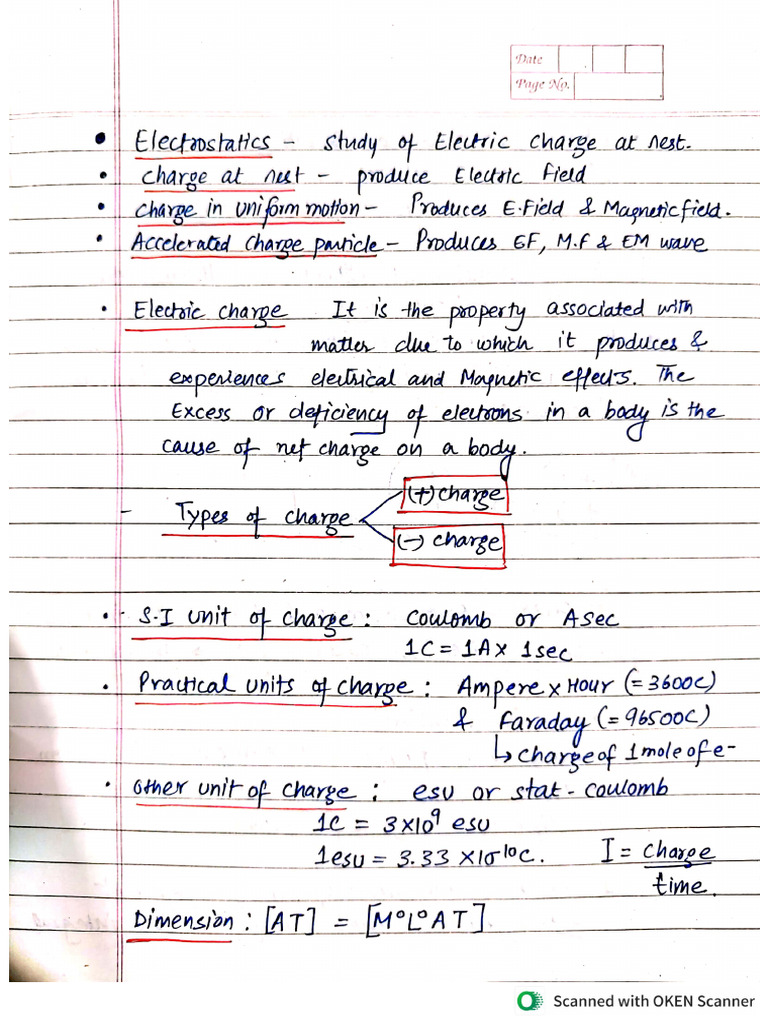 Date
Page No.
• Electrostatics - study of Electric charge at rest.
• charge at rest - produce Electric field
• charge in uniform motion - Produces E.Field & Magnetic field.
• Accelerated charge particle - Produces EF, M.F & EM wave
• Electric charge It is the property associated with
matter due to which it produces &
experiences electrical and Magnetic effects. The
Excess or deficiency of electrons in a body is the
cause of net charge on a body.
(+) charge
- Types of charge
(-) charge
• S.I unit of charge : Coulomb or A sec
1C = 1A x 1sec
• Practical units of charge : Ampere x Hour (= 3600C)
& faraday (= 96500C)
↳ charge of 1 mole of e-
• other unit of charge : esu or stat - coulomb
1C = 3×10⁹ esu
1esu = 3.33 ×10⁻¹⁰C. I = charge
time.
Dimension : [AT] = [M⁰L⁰AT]
Scanned with OKEN Scanner